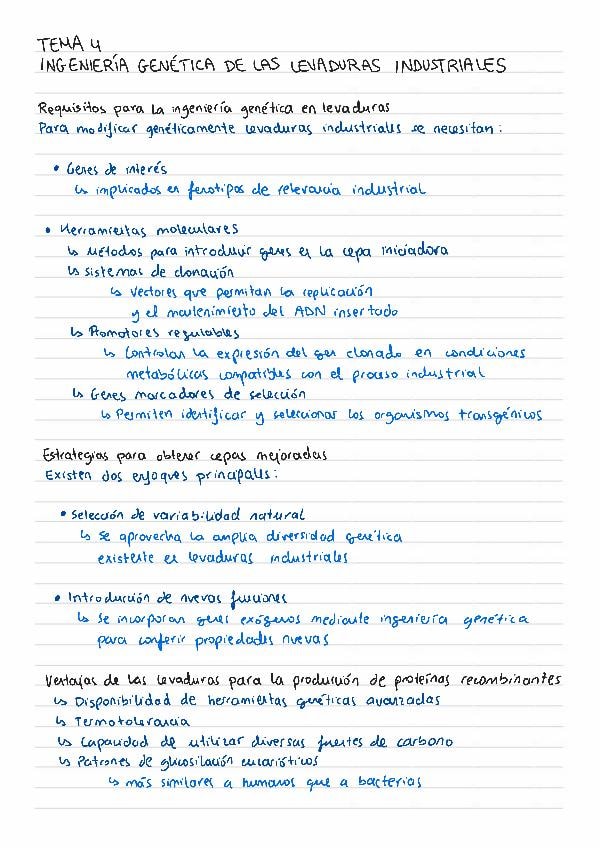 TEMA 4
INGENIERÍA GENÉTICA DE LAS LEVADURAS INDUSTRIALES
Requisitos para la ingeniería genética en levaduras
Para modificar genéticamente levaduras industriales se necesitan:
• Genes de interés
↳ implicados en fenotipos de relevancia industrial
• Herramientas moleculares
↳ Métodos para introducir genes en la cepa iniciadora
↳ Sistemas de clonación
↳ Vectores que permitan la replicación
y el mantenimiento del ADN insertado
↳ Promotores regulables
↳ Controlan la expresión del gen clonado en condiciones
metabólicas compatibles con el proceso industrial
↳ Genes marcadores de selección
↳ Permiten identificar y seleccionar los organismos transgénicos
Estrategias para obtener cepas mejoradas
Existen dos enfoques principales:
• Selección de variabilidad natural
↳ Se aprovecha la amplia diversidad genética
existente en levaduras industriales
• Introducción de nuevas funciones
↳ Se incorporan genes exógenos mediante ingeniería genética
para conferir propiedades nuevas
Ventajas de las levaduras para la producción de proteínas recombinantes
↳ Disponibilidad de herramientas genéticas avanzadas
↳ Termotolerancia
↳ Capacidad de utilizar diversas fuentes de carbono
↳ Patrones de glucosilación eucarióticos
↳ más similares a humanos que a bacterias